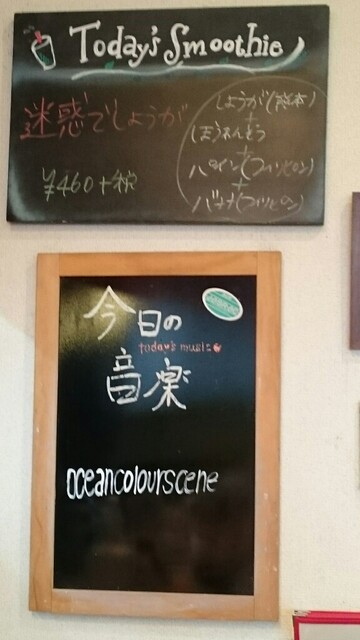 Today's Smoothie
迷惑でしょうが
¥460+税
しょうが(熊本)
+
ほうれんそう
+
パイン(フィリピン)
+
バナナ(フィリピン)
今日の
today's music
音楽
oceancolourscene